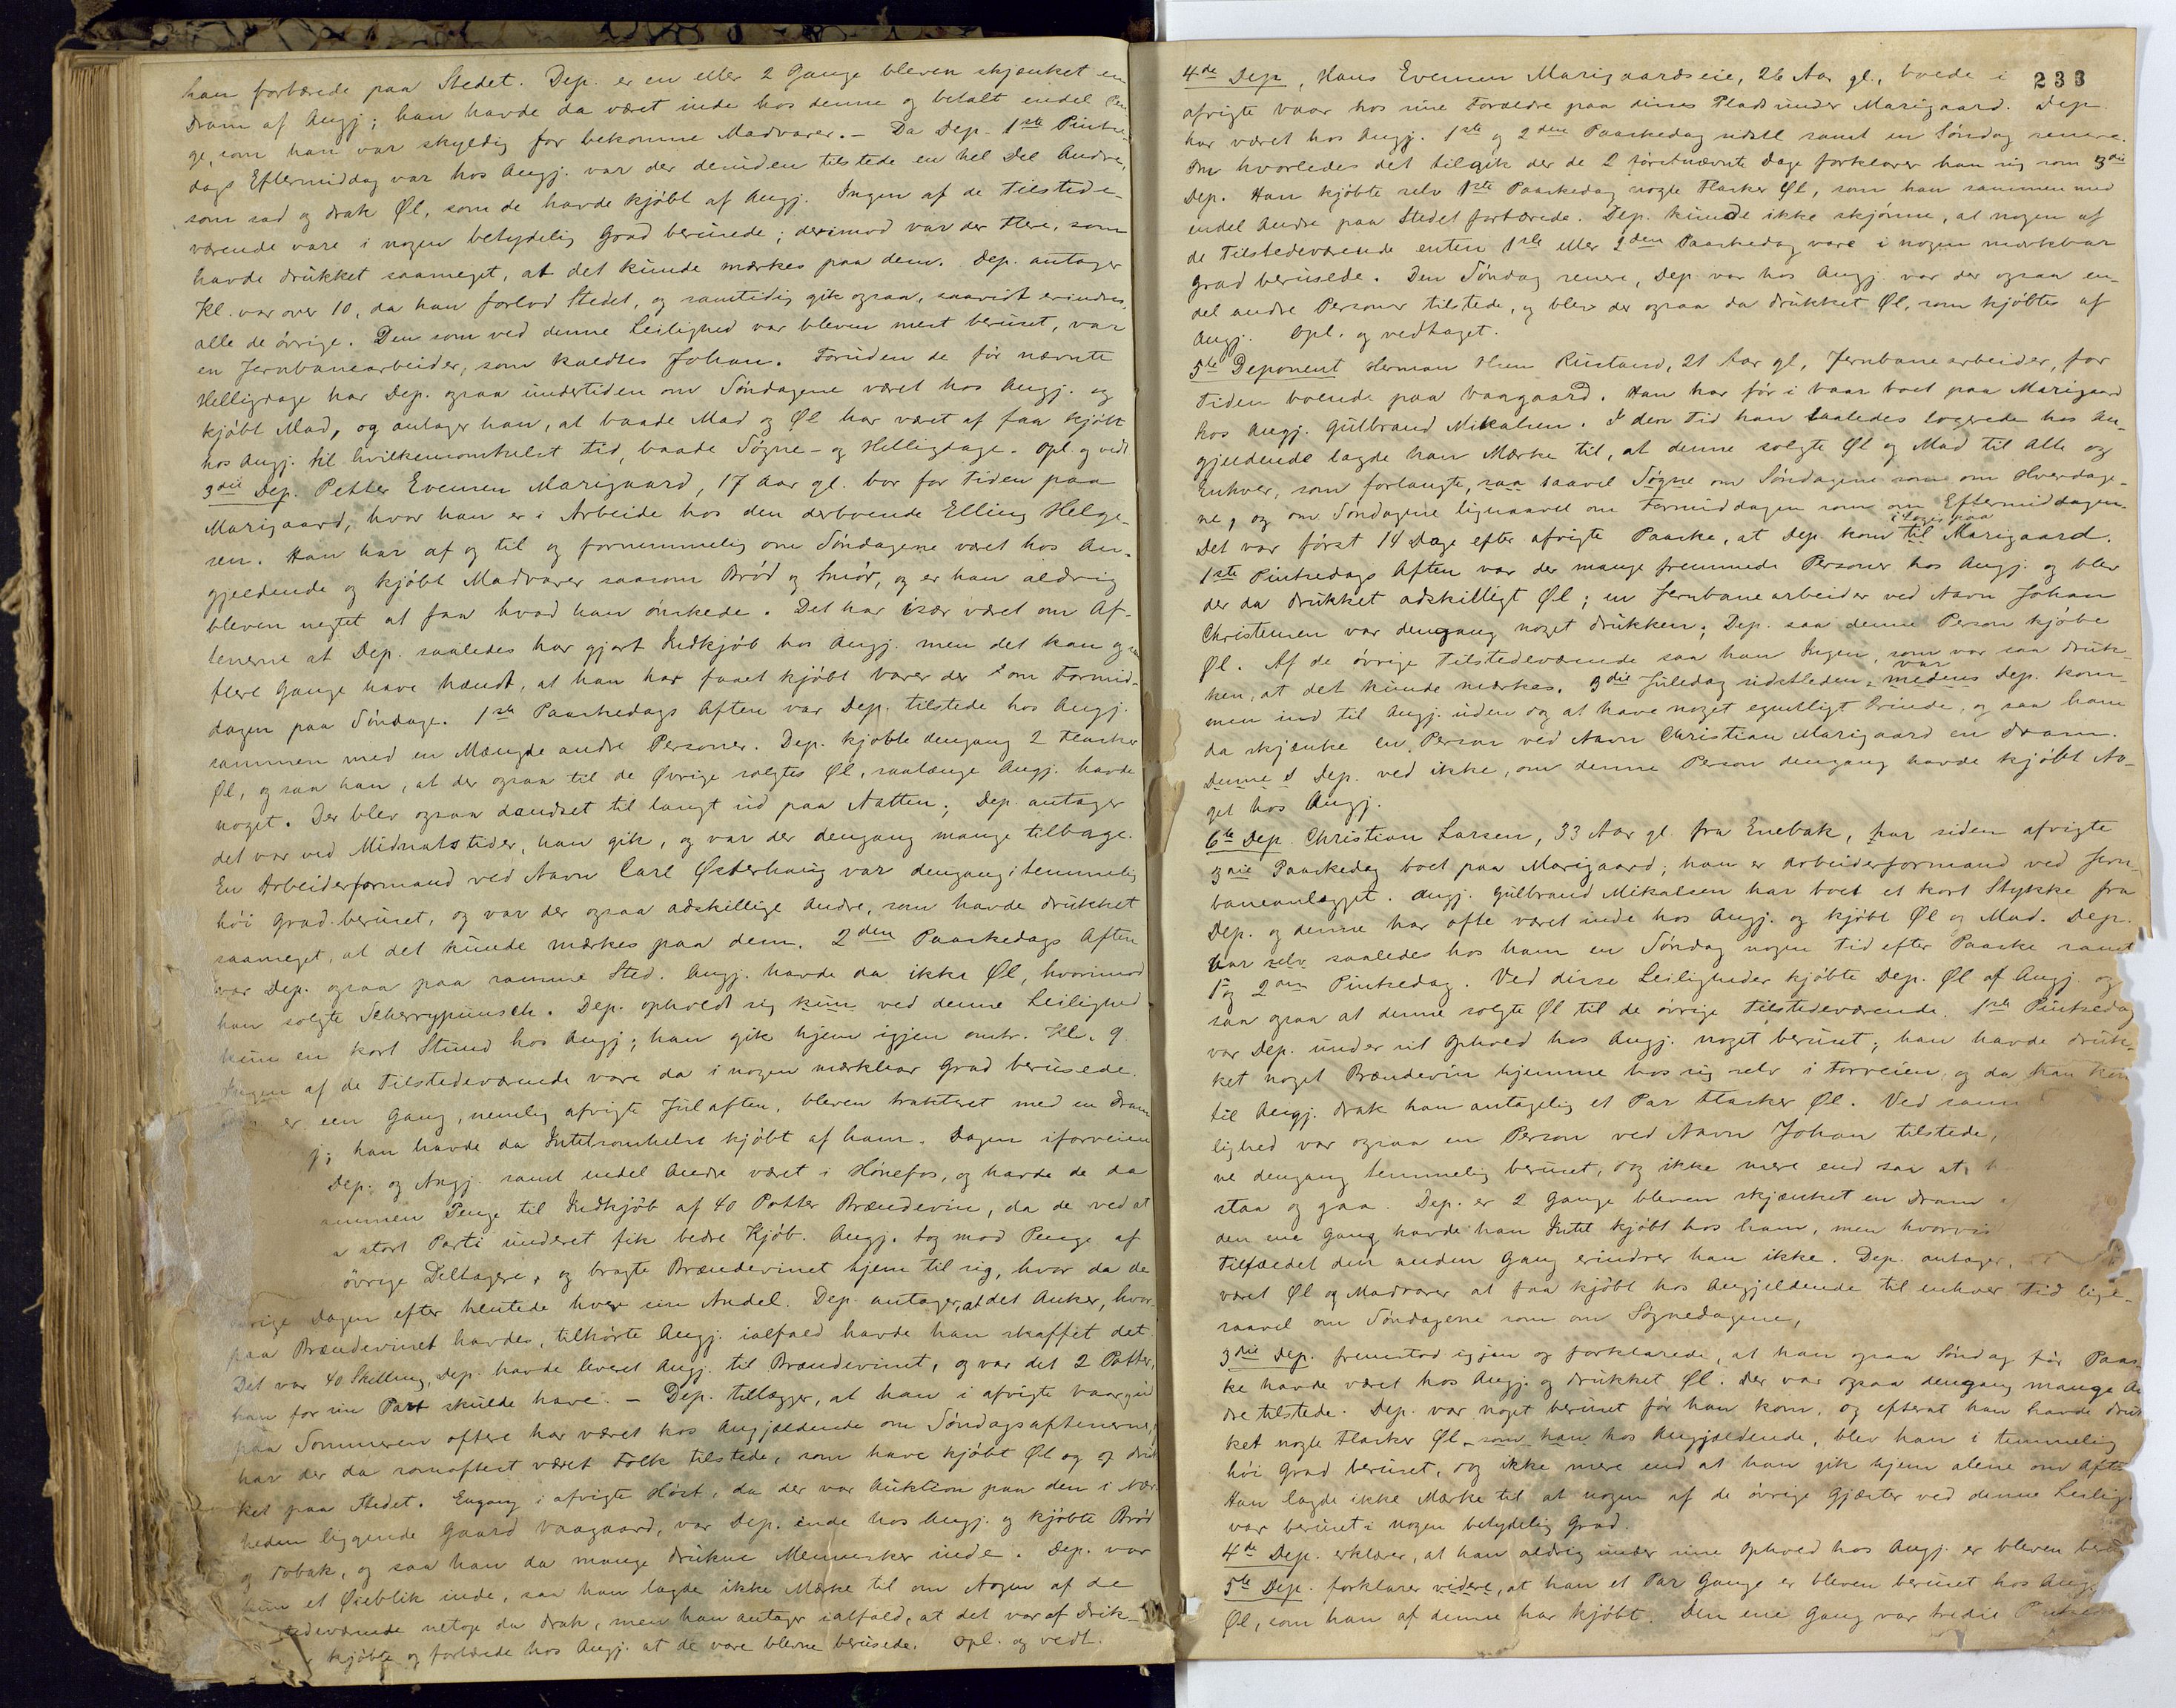 han fortærede paa Stedet. Dep. er en eller 2 Gange bleven skjænket en
Dram af Angj; han havde da været inde hos denne og betalt endel Pen
ge, som han var skyldig for bekomne Madvarer. – Da Dep. 1ste Pintse-
dags Eftermiddag var hos Angj. var der desuden tilstede en hel Del Andre,
som sad og drak Øl, som de havde kjøbt af Angj. Ingen af de Tilstede-
værende vare i nogen betydelig Grad berusede; derimod var der Flere, som
havde drukket saameget, at det kunde mærkes paa dem. Dep. antager
Kl. var over 10, da han forlod Stedet, og samtidig gik ogsaa, saavidt erindres,
alle de øvrige. Den som ved denne Leilighed var bleven mest beruset, var
en Jernbanearbeider, som kaldtes Johan. Foruden de før nævnte
Helligdage har Dep. ogsaa undertiden om Søndagene været hos Angj. og
kjøbt Mad, og antager han, at baade Mad og Øl har været at faa kjøbt
hos Angj. til hvilkensomhelst Tid, baade Søgne- og Helligdage. Opl. og vedt
3die Dep. Petter Evensen Marigaard, 17 Aar gl. bor for Tiden paa
Marigaard, hvor han er i Arbeide hos den derboende Elling Helge-
sen. Han har af og til og fornemmelig om Søndagene været hos An-
gjeldende og kjøbt Madvarer saasom Brød og Smør, og er han aldrig
bleven negtet at faa hvad han ønskede. Det har især været om Af-
tenerne at Dep. saaledes har gjort Indkjøb hos Angj. men det kan og
flere Gange have hændt, at han har faaet kjøbt Varer der om Formid-
dagen paa Søndage. 1ste Paaskedags Aften var Dep. tilstede hos Angj.
sammen med en Mængde andre Personer. Dep. kjøbte dengang 2 Flasker
Øl, og saa han, at der ogsaa til de Øvrige solgtes Øl, saalænge Angj. havde
noget. Der blev ogsaa dandset til langt ud paa Natten; Dep. antager
det var ved Midnatstider, han gik, og var der dengang mange tilbage.
En Arbeiderformand ved Navn Carl Østerhaug var dengang i temmelig
høi Grad beruset, og var der ogsaa adskillige Andre, som havde drukket
saameget, at det kunde mærkes paa dem. 2den Paaskedags Aften
var Dep. ogsaa paa samme Sted. Angj. havde da ikke Øl, hvorimod
han solgte Scherrypunsch. Dep. opholdt sig kun ved denne Leilighed
kun en kort Stund hos Angj; han gik hjem igjen omtr. Kl. 9.
Ingen af de Tilstedeværende vare da i nogen mærkbar Grad berusede.
er een Gang, nemlig afvigte Jul aften, bleven trakteret med en Dram
j; han havde da Intetsomhelst kjøbt af ham. Dagen iforveien
Dep. og Angj. samt endel Andre været i Hønefos, og havde de da
ammen Penge til Indkjøb af 40 Potter Brændevin, da de ved at
stort Parti underet fik bedre Kjøb. Angj. tog mod Penge af
øvrige Deltagere, og bragte Brændevinet hjem til sig, hvor da de
øvrige Dagen efter hentede hver sin Andel. Dep. antager, at det Anker, hvor-
paa Brændevinet havdes, tilhørte Angj. ialfald havde han skaffet det.
Det var 40 Skilling, Dep. havde leveret Angj. til Brændevinet, og var det 2 Potter,
han for sin Part skulde have. – Dep. tillægger, at han i afvigte Vaar og ud
paa Sommeren oftere har været hos Angjældende om Søndagsaftenerne,
har der da somoftest været Folk tilstede, som have kjøbt Øl og druk
ket paa Stedet. Engang i afvigte Høst, da der var Auktion paa den i Nær-
heden liggende Gaard Vaagaard, var Dep. inde hos Angj. og kjøbte Brød
og Tobak, og saa han da mange drukne Mennesker inde. Dep. var
kun et Øieblik inde, saa han lagde ikke Mærke til om Nogen af de
tedeværende netop da drak, men han antager ialfald, at det var af Drik-
kjøbte og fortærede hos Angj. at de vare blevne berusede. Opl. og vedt.
233
4de Dep, Hans Evensen Marigaardseie, 26 Aar gl., boede i
afvigte Vaar hos sine Forældre paa disses Plads under Marigaard. Dep.
har været hos Angj. 1ste og 2den Paaskedag sidstl samt en Søndag senere.
Om hvorledes det tilgik der de 2 førstnævnte Dage forklarer han sig som 3die
Dep. Han kjøbte selv 1ste Paaskedag nogle Flasker Øl, som han sammen med
endel Andre paa Stedet fortærede. Dep. kunde ikke skjønne, at nogen af
de Tilstedeværende enten 1ste eller 2den Paaskedag vare i nogen mærkbar
Grad berusede. Den Søndag senere, Dep. var hos Angj. var der ogsaa en-
del andre Personer tilstede, og blev der ogsaa da drukket Øl, som kjøbtes af
Angj. Opl. og vedtaget.
5te Deponent Herman Rustand, 21 Aar gl, Jernbanearbeider, for
Tiden boende paa Vaagaard. Han har før i Vaar boet paa Marigaard
hos Angj. Gulbrand Mikalsen. I den Tid han saaledes logerede hos An-
gjeldende lagde han Mærke til, at denne solgte Øl og Mad til Alle og
Enhver, som forlangte, saa saavel Søgne om Søndagene som om Hverdage-
ne, og om Søndagene ligesaavel om Formiddagen som om Eftermiddagen.
i Logis paa
Det var først 14 Dage efter afvigte Paaske, at Dep. kom til Marigaard.
1ste Pintsedags Aften var der mange fremmede Personer hos Angj. og blev
der da drukket adskilligt Øl; en Jernbanearbeider ved Navn Johan
Christensen var dengang noget drukken; Dep. saa denne Person kjøbe
Øl. Af de øvrige Tilstedeværende saa han Ingen, som var saa druk-
ken, at det kunde mærkes. 3die Juledag sidstleden, var medens Dep. kom-
men ind til Angj. uden dog at have noget egentligt Ærinde, og saa ham
da skjænke en Person ved Navn Christian Marigaard en Dram.
Denne Dep. ved ikke, om denne Person dengang havde kjøbt No-
get hos Angj.
6te Dep. Christian Larsen, 33 Aar gl. fra Enebak, har siden afvigte
3die Paaskedag boet paa Marigaard; han er Arbeiderformand ved Jern-
baneanlægget. Angj. Gulbrand Mikalsen har boet et kort Stykke fra
Dep. og denne har ofte været inde hos Angj. og kjøbt Øl og Mad. Dep.
var selv saaledes hos ham en Søndag nogen Tid efter Paaske samt
1 og 2den Pintsedag. Ved disse Leiligheder kjøbte Dep. Øl af Angj. og
saa ogsaa at denne solgte Øl til de øvrige Tilstedeværende. 1ste Pintsedag
var Dep. under sit Ophold hos Angj. noget beruset; han havde druk-
ket noget Brændevin hjemme hos sig selv i Forveien, og da han kom
til Angj. drak han antagelig et Par Flasker Øl. Ved samm
lighed var ogsaa en Person ved Navn Johan tilstede,
ne dengang temmelig beruset, dog ikke mere end saa at
staa og gaa. Dep. er 2 Gange bleven skjænket en Dram
den ene Gang havde han Intet kjøbt hos ham, men hvorvi
Tilfældet den anden Gang erindrer han ikke. Dep. antager,
været Øl og Madvarer at faa kjøbt hos Angjeldende til enhver Tid lige-
saavel om Søndagene som om Søgnedagene,
3die Dep. fremstod igjen og forklarede, at han ogsaa Søndag før Paas-
ke havde været hos Angj. og drukket Øl. Der var ogsaa dengang mange An
dre tilstede. Dep. var noget beruset før han kom, og efterat han havde druk
ket nogle Flasker Øl som han hos Angjældende, blev han i temmelig
høi Grad beruset, dog ikke mere end at han gik hjem alene om Afte
Han lagde ikke Mærke til at nogen af de øvrige Gjæster ved denne Leilig
var beruset i nogen betydelig Grad.
4de Dep. erklærer, at han aldrig under sine Ophold hos Angj. er bleven beru
5te Dep. forklarer videre, at han et Par Gange er bleven beruset hos Ang
Øl, som han af denne har kjøbt. Den ene Gang var tredie